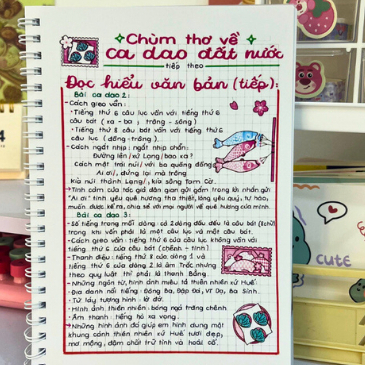 Chùm thơ về
ca dao đất nước
tiếp theo
Đọc hiểu văn bản (tiếp):
Bài ca dao 2:
- Cách gieo vần:
• Tiếng thứ 6 câu lục vần với tiếng thứ 6
câu bát (xa - ba, trông - sông)
• Tiếng thứ 8 câu bát vần với tiếng thứ 6
câu lục (đồng - trông).
- Cách ngắt nhịp: ngắt nhịp chẵn:
Đường lên / xứ Lạng / bao xa?
Cách một trái núi / với ba quãng đồng
Ai ơi, đứng lại mà trông
Kìa núi thành Lạng /, kìa sông Tam Cờ.
→ Tình cảm của tác giả dân gian gửi gắm trong lời nhắn gửi
"Ai ơi" tình yêu quê hương tha thiết, lòng yêu quý, tự hào,
muốn được kể ra, chia sẻ với mọi người về quê hương của mình.
Bài ca dao 3:
- Số tiếng trong mỗi dòng: có 2 dòng đầu đều là câu bát (8 chữ)
trong khi vần phải là một câu lục và một câu bát.
- Cách gieo vần: tiếng thứ 6 câu lục không vần với
tiếng thứ 6 của câu bát (chênh - tình)
- Thanh điệu: tiếng thứ 8 của dòng 1 và
tiếng thứ 6 của dòng 2 là âm Trắc nhưng
theo quy luật thì phải là thanh Bằng.
- Những ngôn từ, hình ảnh miêu tả thiên nhiên xứ Huế:
• Địa danh nổi tiếng: Đông Ba, Đập Đá, Vĩ Dạ, Ba Sinh.
• Từ láy tượng hình: lờ đờ.
• Hình ảnh thiên nhiên: bóng ngả trăng chênh
• Âm thanh: tiếng hò xa vọng.
→ Những hình ảnh đó giúp em hình dung một
khung cảnh thiên nhiên xứ Huế tươi đẹp,
mơ mộng, đậm chất trữ tình và hoài cổ.
cute
4